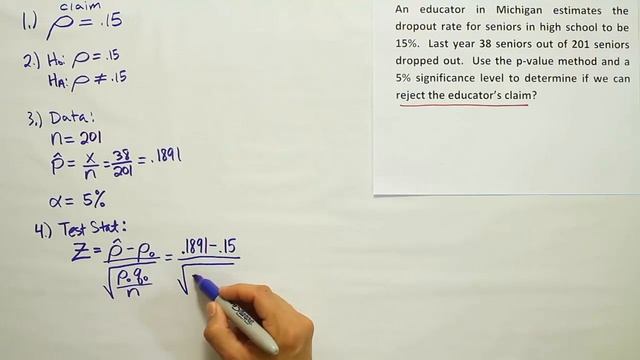 claim
1.) ρ = .15
2.) H₀: ρ = .15
HA: ρ ≠ .15
3.) Data:
n = 201
p̂ = x/n = 38/201 = .1891
α = 5%
4.) Test Stat:
Z = (p̂ - ρ₀)/√(ρ₀q₀/n) = (.1891 - .15)/√
An educator in Michigan estimates the
dropout rate for seniors in high school to be
15%. Last year 38 seniors out of 201 seniors
dropped out. Use the p-value method and a
5% significance level to determine if we can
reject the educator's claim?